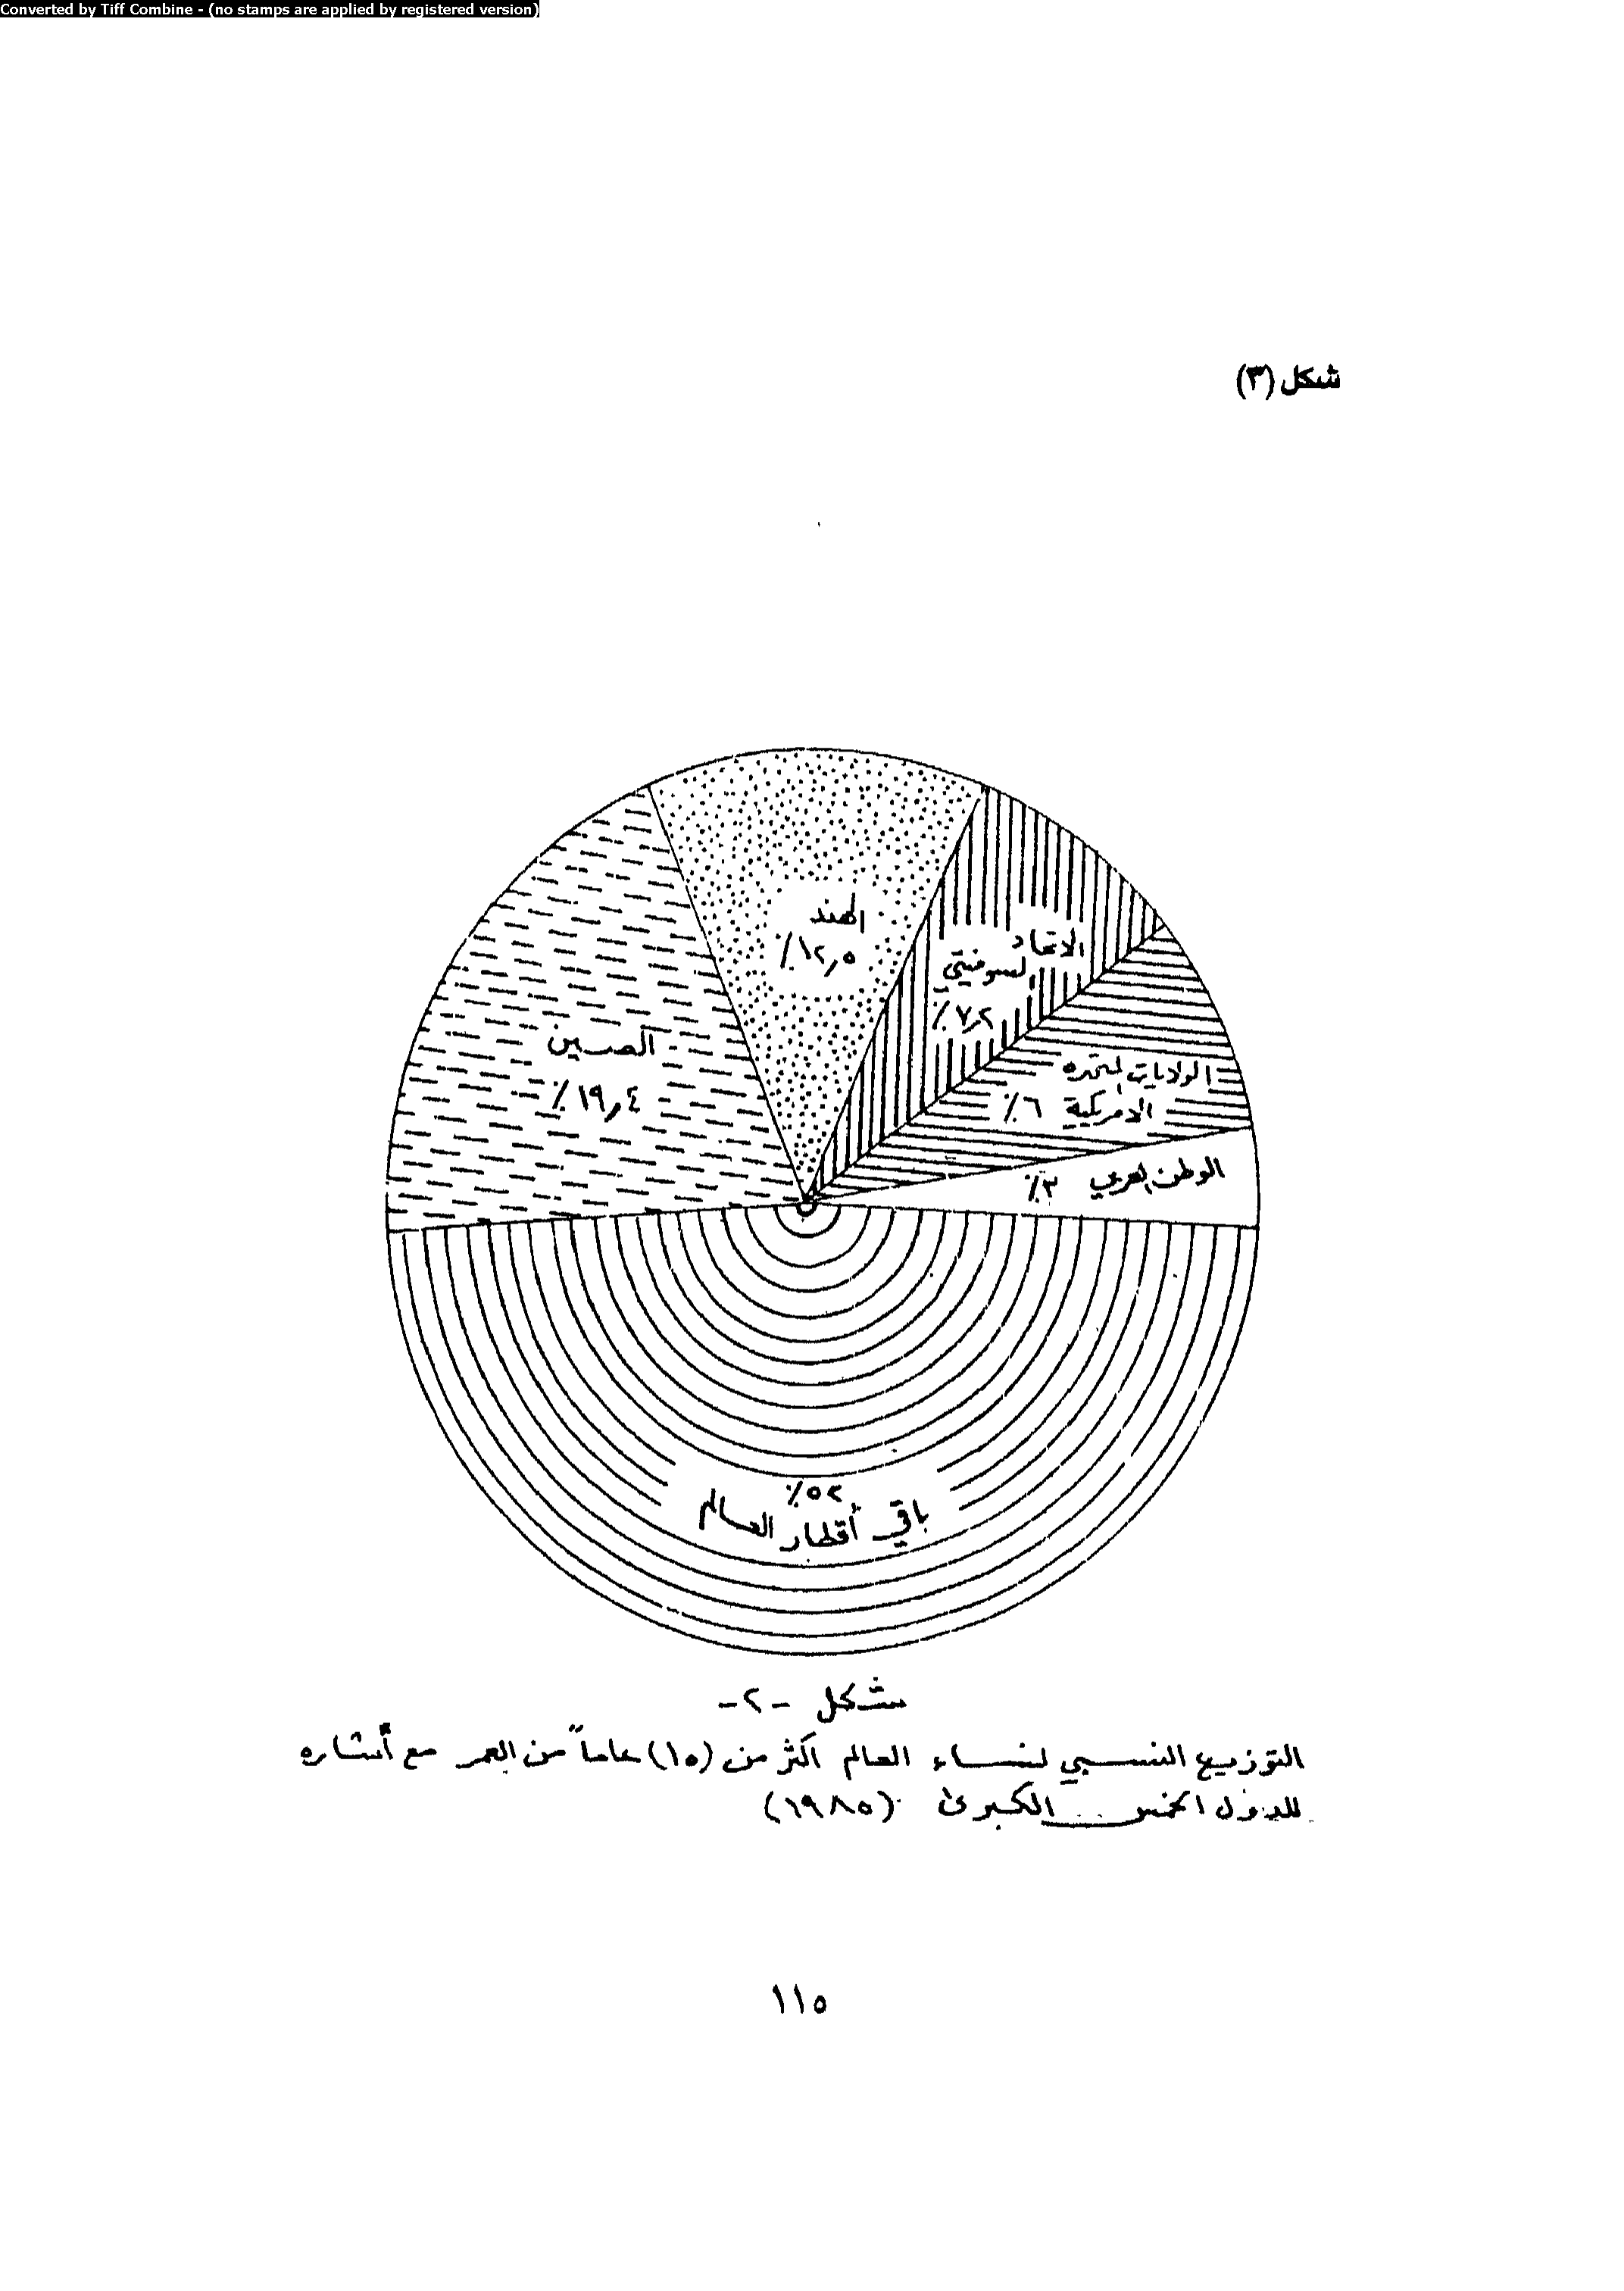 Converted by Tiff Combine - (no stamps are applied by registered version)
شكل (٣)
الهند
٪١٢,٥
الاتحاد
السوفيتي
٪٧,٢
الصين
٪١٩,٤
الولايات المتحده
الامريكية ٦٪
الوطن العربي ٣٪
٪٥٢
باقي أقطار العالم
شكل -٢-
التوزيع النسبي لنساء العالم اكثر من (١٥) عاماً من العمر مع أشاره
للدول الخمس الكبرى (١٩٨٥)
١١٥